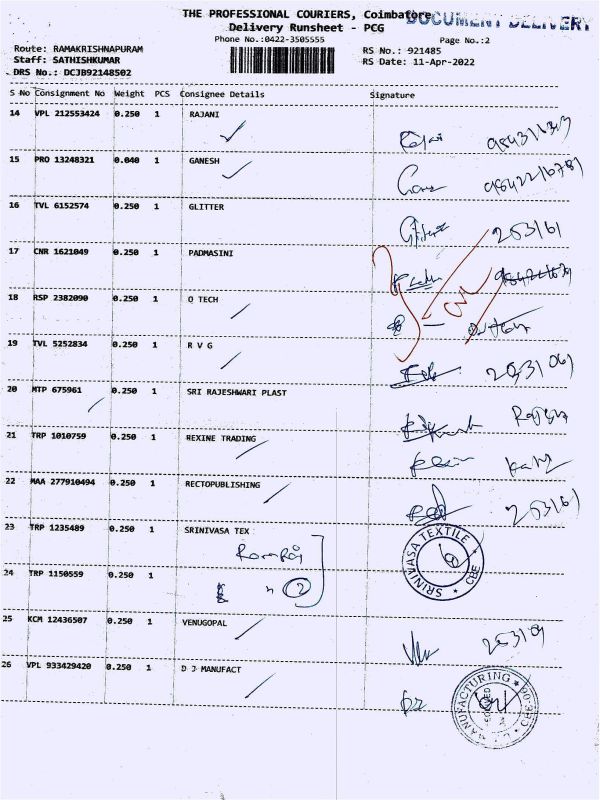 THE PROFESSIONAL COURIERS, Coimbatore
DOCUMENT DELIVERY
Delivery Runsheet - PCG
Phone No.:0422-3505555
Page No.:2
Route: RAMAKRISHNAPURAM
RS No.: 921485
Staff: SATHISHKUMAR
RS Date: 11-Apr-2022
DRS No.: DCJB92148502
S No Consignment No Weight PCS Consignee Details Signature
14 VPL 212553424 0.250 1 RAJANI
15 PRO 13248321 0.040 1 GANESH
16 TVL 6152574 0.250 1 GLITTER
253161
17 CNR 1621049 0.250 1 PADMASINI
18 RSP 2382090 0.250 1 O TECH
19 TVL 5252834 0.250 1 R V G
20 MTP 675961 0.250 1 SRI RAJESHWARI PLAST
21 TRP 1010759 0.250 1 REXINE TRADING
22 MAA 277910494 0.250 1 RECTOPUBLISHING
253161
23 TRP 1235489 0.250 1 SRINIVASA TEX
SRINIVASA TEXTILE * CBE *
24 TRP 1150559 0.250 1
2
25 KCM 12436507 0.250 1 VENUGOPAL
26 VPL 933429420 0.250 1 D J MANUFACT
MANUFACTURING * CBE-06